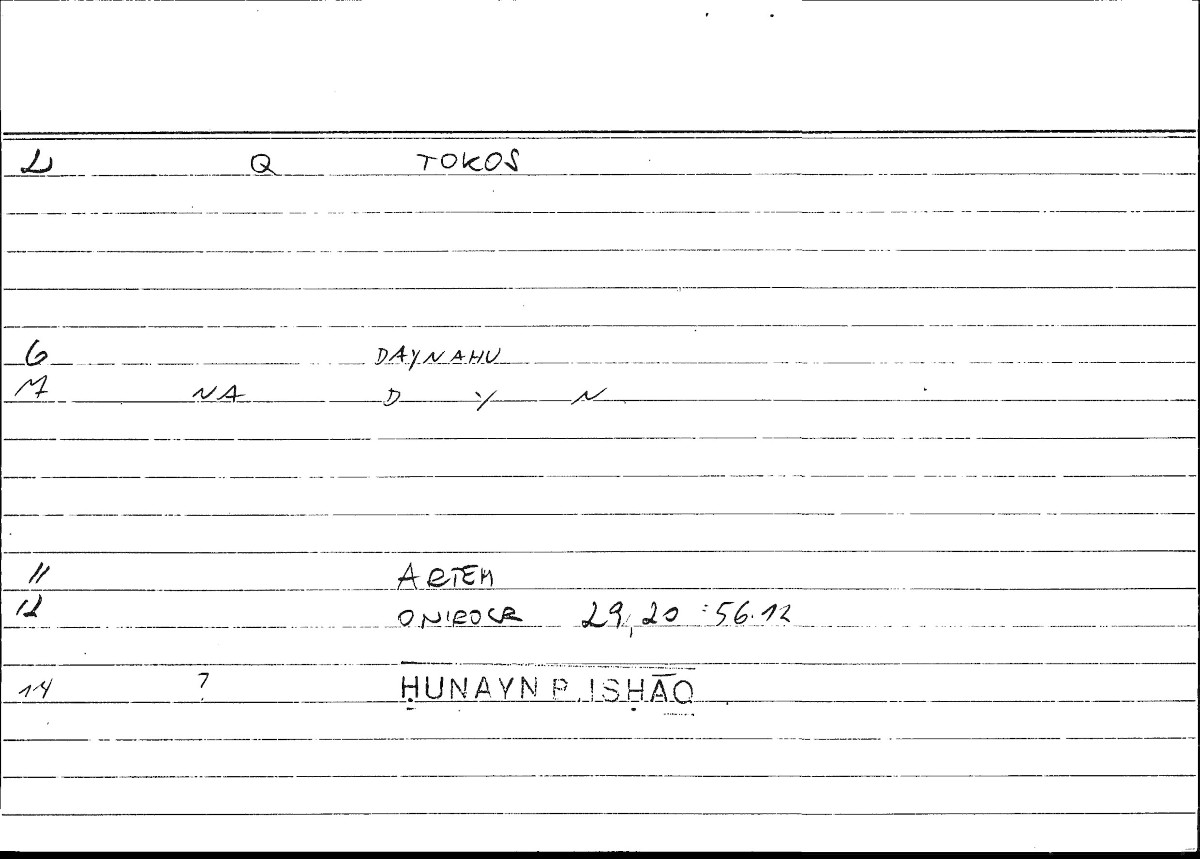 2 Q TOKOS
6 DAYNAHU
7 NA D Y N
11 ARTEM
12 ONIROCR 29,20 : 56.12
14 ? ḤUNAYN B. ISḤĀQ